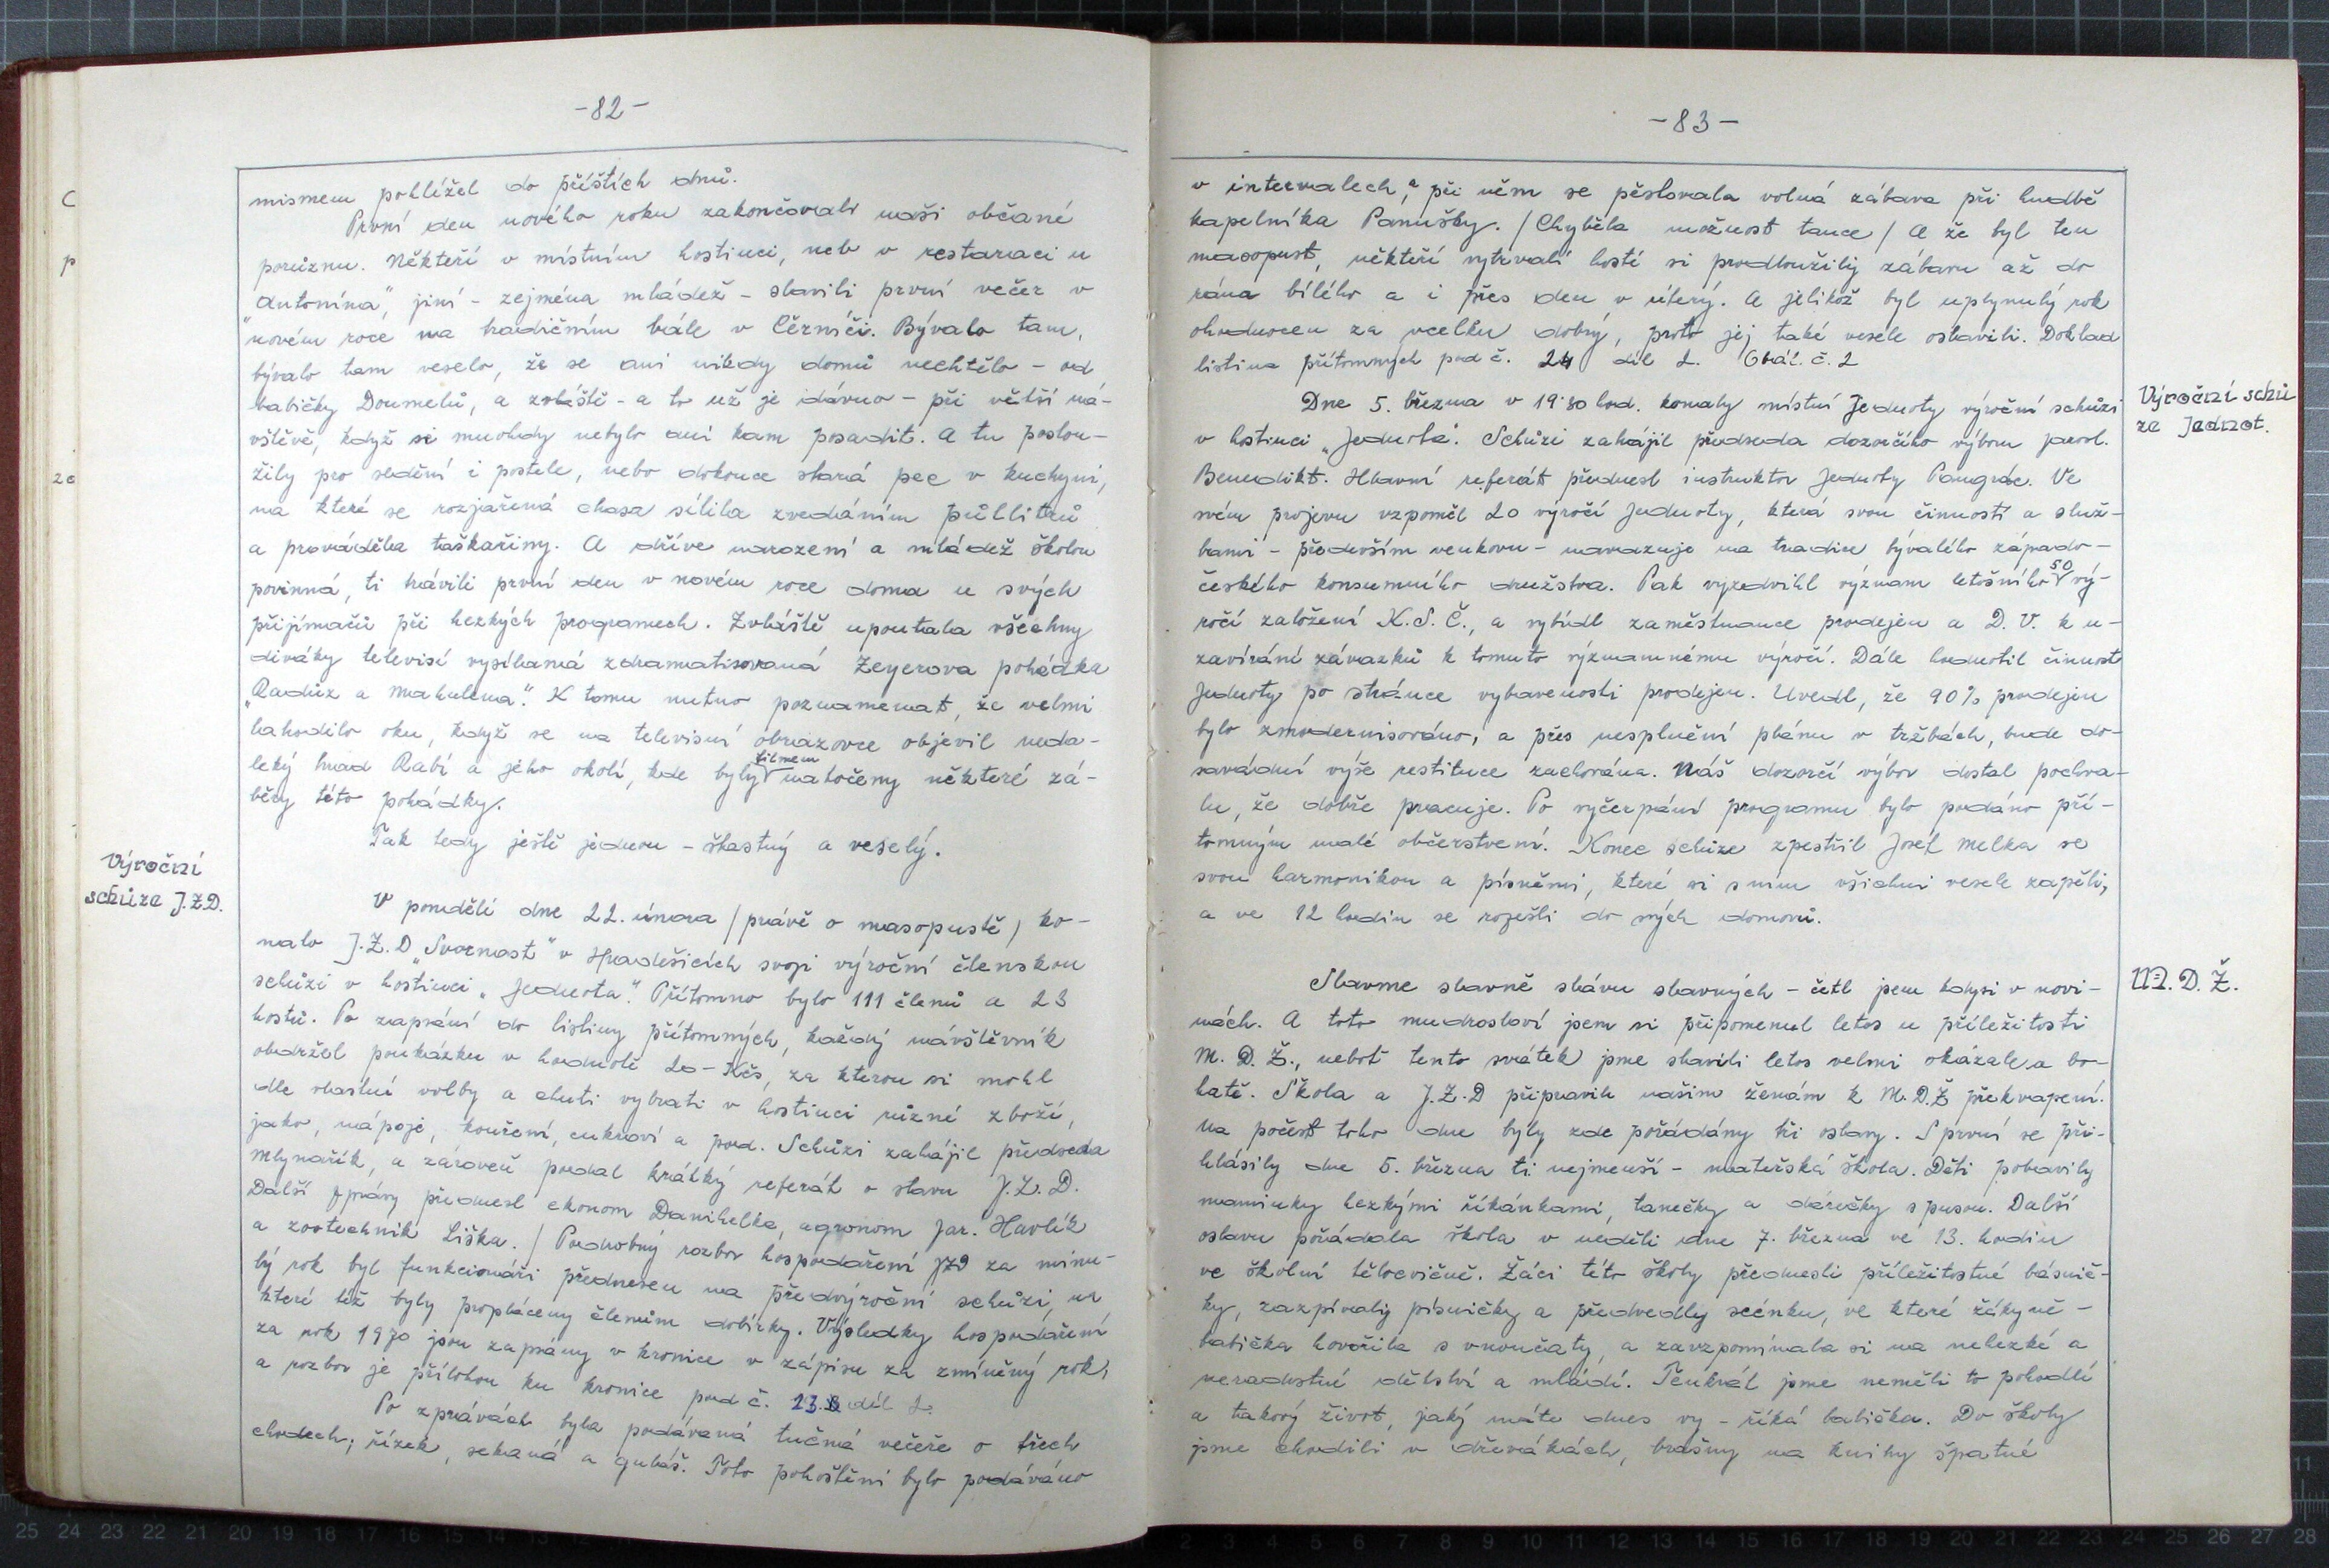 -82-
mismem pohlížel do příštích dnů.
První den nového roku zakončovali naši občané
porůznu. Někteří v místním hostinci, neb v restaraci u
"Antonína", jiní - zejména mládež - slavili první večer v
novém roce na tradičním bále v Čěrníči. Bývalo tam,
bývalo tam veselo, že se ani nikdy domů nechtělo - od
babičky Doumelů, a zvláště - a to už je dávno - při větší ná-
vštěvě, když si mnohdy nebylo ani kam posadit. A tu poslou-
žily pro sedění i postele, nebo dokonce stará pec v kuchyni,
na které se rozjařená chasa sílila zvedáním půllitrů
a prováděla taškařiny. A dříve narození a mládež školou
povinná, ti trávili první den v novém roce doma u svých
přijímačů při hezkých programech. Zvláště upoutala všechny
diváky televisí vysílaná zdramatisovaná Zeyerova pohádka
"Radúz a Mahulena". K tomu nutno poznamenat, že velmi
lahodilo oku, když se na televisní obrazovce objevil neda-
leký hrad Rabí a jeho okolí, kde byly filmem natočeny některé zá-
běry této pohádky.
Tak tedy ještě jednou - šťastný a veselý.
Výroční
schůze J.Z.D.
V pondělí dne 22. února / právě o masopustě / ko-
nalo J.Z.D "Svornost" v Hradešicích svoji výroční členskou
schůzi v hostinci "Jednota". Přítomno bylo 111 členů a 23
hostů. Po zapsání do listiny přítomných, každý návštěvník
obdržel poukázku v hodnotě 20-Kčs, za kterou si mohl
dle vlastní volby a chuti vybrati v hostinci různé zboží,
jako, nápoje, kouření, cukroví a pod. Schůzi zahájil předseda
Mlynařík, a zároveň podal krátký referát o stavu J.Z.D.
Další zprávy přednesl ekonom Danihelka, agronom Jar. Havlík
a zootechnik Liška. / Podrobný rozbor hospodaření JZD za minu-
lý rok byl funkcionáři přednesen na předvýroční schůzi, na
které též byly propláceny členům dobírky. Výsledky hospodaření
za rok 1970 jsou zapsány v kronice v zápisu za zmíněný rok,
a rozbor je přílohou ku kronice pod č. 23. díl 2.
Po zprávách byla podávaná tučná večeře o třech
chodech; řízek, sekaná a guláš. Toto pohoštění bylo podáváno
-83-
v intervalech, a při něm se pěstovala volná zábava při hudbě
kapelníka Panušky. / Chyběla možnost tance / A že byl ten
masopust, někteří vytrvalí hosté si prodloužily zábavu až do
rána bílého a i přes den v úterý. A jelikož byl uplynulý rok
ohodnocen za vcelku dobrý, proto jej také vesele oslavili. Doklad
listina přítomných pod č. 24 díl 2. Obál. č. 2
Výroční schů
ze Jednot.
Dne 5. března v 19·30 hod. konaly místní Jednoty výroční schůzi
v hostinci "Jednota". Schůzi zahájil předseda dozorčího výboru Jarosl.
Benedikt. Hlavní referát přednesl instruktor Jednoty Pangrác. Ve
svém projevu vzpoměl 20 výročí Jednoty, která svou činností a služ-
bami - především venkovu - navazuje na tradice bývalého západo-
českého konsumního družstva. Pak vyzedvihl význam letošního 50 vý-
ročí založení K.S.Č., a vybídl zaměstnance prodejen a D.V. k u-
zavírání závazků k tomuto významnému výročí. Dále hodnotil činnost
Jednoty po stránce vybavenosti prodejen. Uvedl, že 90% prodejen
bylo zmodernisováno, a přes nesplnění plánu v tržbách, bude do-
savádní výše restituce zachována. Náš dozorčí výbor dostal pochva-
lu, že dobře pracuje. Po vyčerpání programu bylo podáno pří-
tomným malé občerstvení. Konec schůze zpestřil Josef Melka se
svou harmonikou a písněmi, které si s ním všichni vesele zapěli,
a ve 12 hodin se rozešli do svých domovů.
M. D. Ž.
Slavme slavně slávu slavných - četl jsem kdysi v novi-
nách. A toto mudrosloví jsem si připomenul letos u příležitosti
M. D. Ž., neboť tento svátek jsme slavili letos velmi okázale a bo-
hatě. Škola a J.Z.D připravili našim ženám k M.D.Ž překvapení.
Na počest toho dne byly zde pořádány tři oslavy. S první se při-
hlásily dne 5. března ti nejmenší - mateřská škola. Děti pobavily
maminky hezkými říkánkami, tanečky a dárečky s pusou. Další
oslavu pořádala škola v neděli dne 7. března ve 13. hodin
ve školní tělocvičně. Žáci této školy přednesli příležitostné básnič-
ky, zazpívaly písničky a předvedly scénku, ve které žákyně -
babička hovořila s vnoučaty, a zavzpomínala si na nehezké a
neradostné dětství a mládí. Tenkrát jsme neměli to pohodlí
a takový život, jaký máte dnes vy - říká babička. Do školy
jsme chodili v dřevákách, brašny na knihy špatné